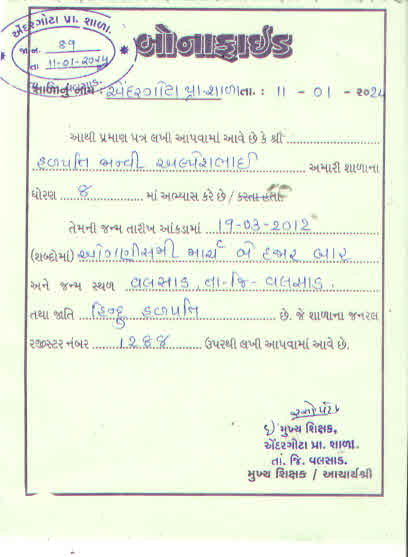 એંદરગોટા પ્રા. શાળા.
જા.નં. ૪૧
તા. 11-01-૨૦૨૪
જિ. વલસાડ.
બોનાફાઈડ
શાળાનું નામ : એંદરગોટા પ્રા. શાળા તા. : 11 - 01 - ૨૦૨૪
આથી પ્રમાણ પત્ર લખી આપવામાં આવે છે કે શ્રી
હળપતિ જાન્વી અલ્પેશભાઈ અમારી શાળાના
ધોરણ ૬ માં અભ્યાસ કરે છે / કરતા હતા.
તેમની જન્મ તારીખ આંકડામાં 19-03-2012
(શબ્દોમાં) ઓગણીસમી માર્ચ બે હજાર બાર
અને જન્મ સ્થળ વલસાડ, તા-જિ- વલસાડ.
તથા જાતિ હિન્દુ હળપતિ છે. જે શાળાના જનરલ
રજીસ્ટર નંબર 1288 ઉપરથી લખી આપવામાં આવે છે.
મુખ્ય શિક્ષક,
એંદરગોટા પ્રા. શાળા.
તાં. જિ. વલસાડ.
મુખ્ય શિક્ષક / આચાર્યશ્રી